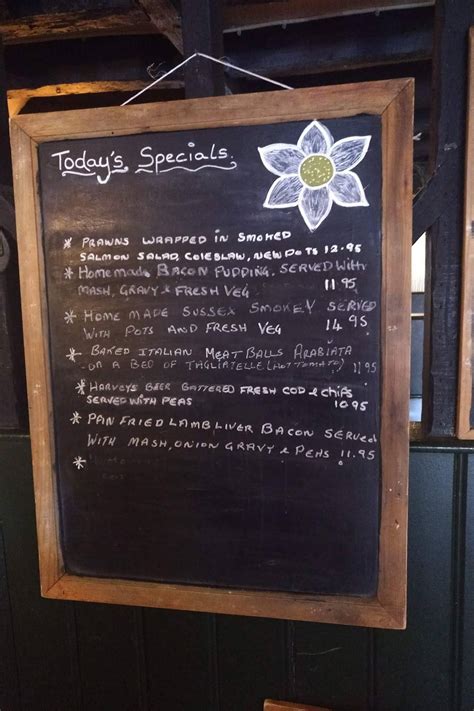 Today's Specials.
* PRAWNS WRAPPED IN SMOKED
SALMON SALAD, COLESLAW, NEW POTS 12.95
* Homemade BACON PUDDING. SERVED WITH
MASH, GRAVY & FRESH VEG 11.95
* HOME MADE SUSSEX SMOKEY SERVED
WITH POTS AND FRESH VEG 14.95
* BAKED ITALIAN MEAT BALLS ARABIATA
ON A BED OF TAGLIATELLE (HOT TOMATO) 11.95
* HARVEYS BEER BATTERED FRESH COD & CHIPS
SERVED WITH PEAS 10.95
* PAN FRIED LAMB LIVER BACON SERVED
WITH MASH, ONION GRAVY & PEAS 11.95
* HOME